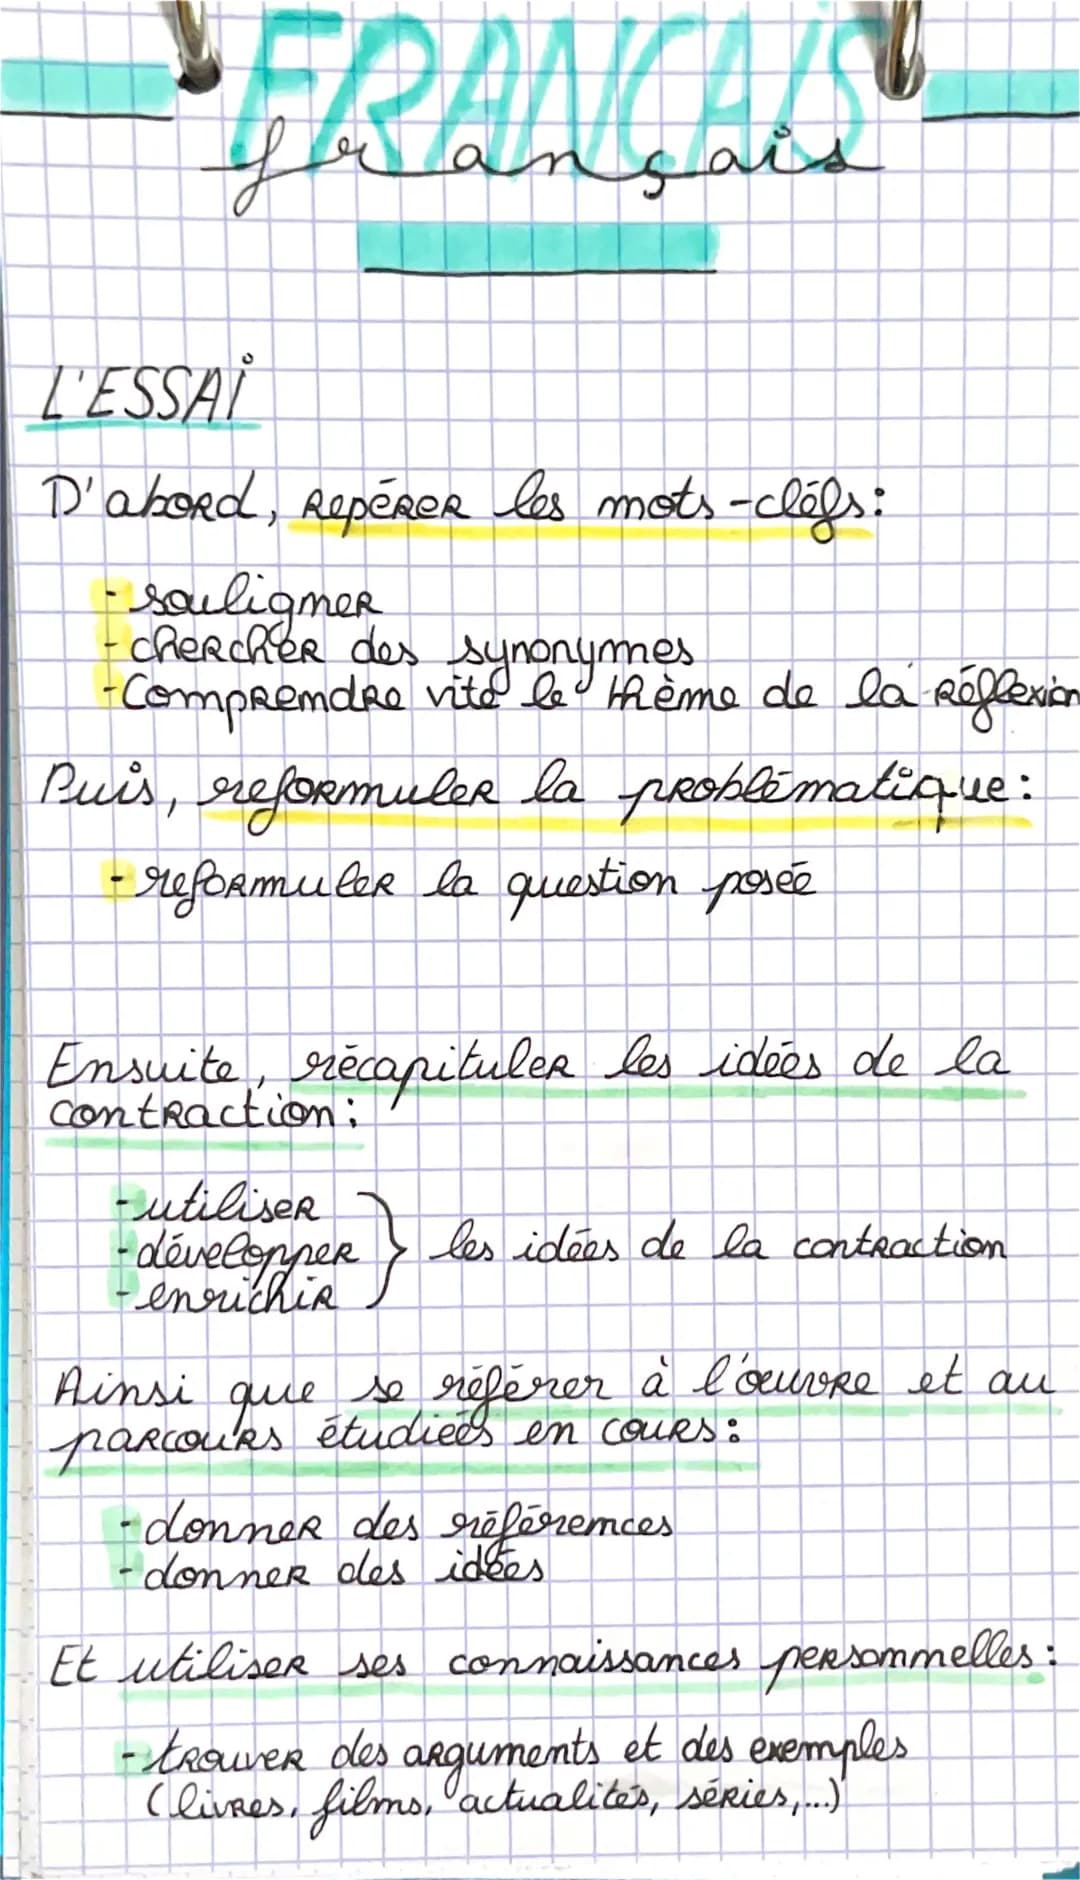 FRANÇAIS
français
L'ESSAI
D'abord, repérer les mots-cléfs:
- souligner
- chercher des synonymes
- Comprendre vite le thème de la réflexion
Puis, reformuler la problématique:
- reformuler la question posée
Ensuite, récapituler les idées de la
contraction:
- utiliser
- développer } les idées de la contraction
- enrichir
Ainsi que se référer à l'œuvre et au
parcours étudiées en cours:
- donner des références
- donner des idées
Et utiliser ses connaissances personnelles:
- trouver des arguments et des exemples
(livres, films, actualités, séries,...)